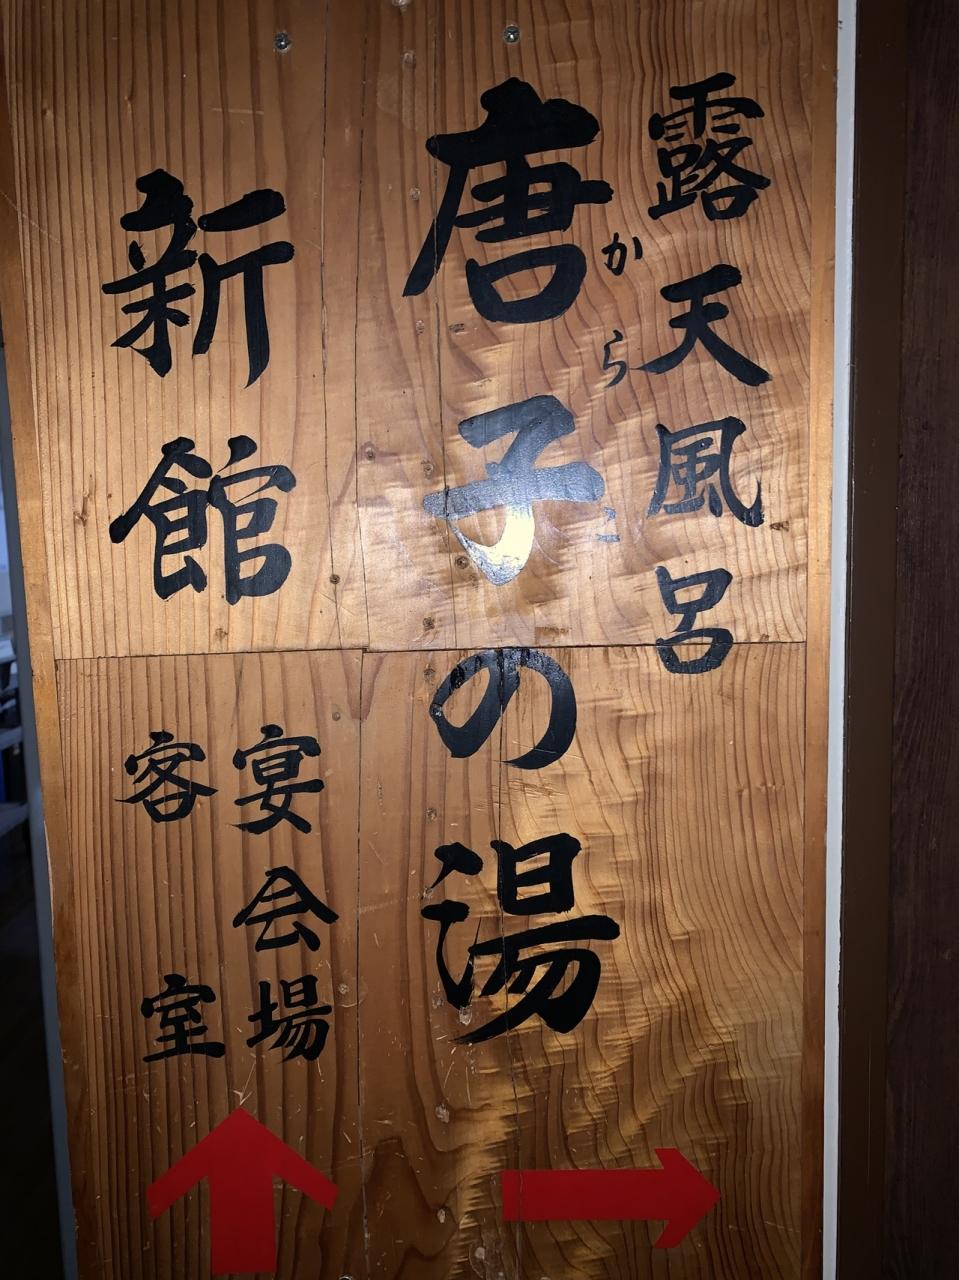 露天風呂
からこ
唐子の湯
新館
宴会場
客室